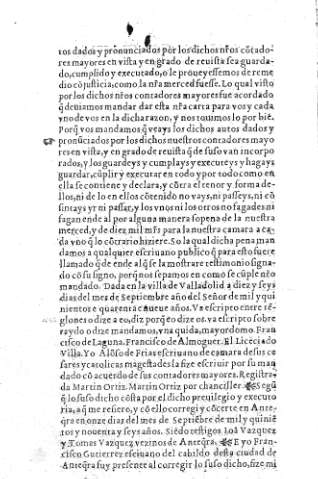 tos dados y pronunciados por los dichos nr̃os cõtado-
res mayores en vista y en grado de reuista sea guarda-
do, cumplido y executado, o le proueyessemos de reme
dio cõ justicia, como la nr̃a merced fuesse. Lo qual visto
por los dichos nr̃os contadores mayores fue acordado
q̃ deuiamos mandar dar esta nr̃a carta para vos y cada
vno de vos en la dicha razon, y nos touimos lo por biẽ.
Porq̃ vos mandamos q̃ veays los dichos autos dados y
pronũciados por los dichos nuestros contadores mayo
res en vista, y en grado de reuista q̃ de suso van incorpo
rados, y los guardeys y cumplays y executeys y hagays
guardar, cũplir y executar en todo y por todo como en
ella se contiene y declara, y cõtra el tenor y forma de-
llos, ni de lo en ellos cõtenido no vays, ni passeys, ni cõ
sintays yr ni passar, y los vnos ni los otros no fagades ni
fagan ende al por alguna manera so pena de la nuestra
merced, y de diez mil mr̃s para la nuestra camara a ca-
da vno q̃ lo cõtrario hiziere. So la qual dicha pena man
damos a qualquier escriuano publico q̃ para esto fuere
llamado q̃ de ende al q̃ se la mostrare testimonio signa-
do cõ su signo, porq̃ nos sepamos en como se cũple nr̃o
mandado. Dada en la villa de Valladolid a diez y seys
dias del mes de Septiembre año del Señor de mil y qui
nientos e quarenta e nueue años. Va escripto entre rẽ-
glones o dize a eo, diz porq̃ eo dize os. va escripto sobre
raydo o dize mandamos, vna quida, mayordomo. Fran
cisco de Laguna. Francisco de Almoguer. El Licẽciado
Villa. Yo Alõso de Frias escriuano de camara de sus ce
sares y catolicas magestades la fize escriuir por su man
dado cõ acuerdo de sus contadores mayores. Registra-
da Martin Ortiz. Martin Ortiz por chanciller. Segũ
q̃ lo suso dicho cõsta por el dicho preuilegio y executo
ria, a q̃ me refiero, y cõ ello corregi y cõcerte en Ante-
q̃ra en onze dias del mes de Septiẽbre de mil y quiniẽ
tos y nouenta y seys años. Siẽdo testigos Loã Vazquez
y Tomes Vazquez vezinos de Anteq̃ra. E yo Fran-
cisco Gutierrez escriuano del cabildo desta ciudad de
Anteq̃ra fuy presente al corregir lo suso dicho, fize mi